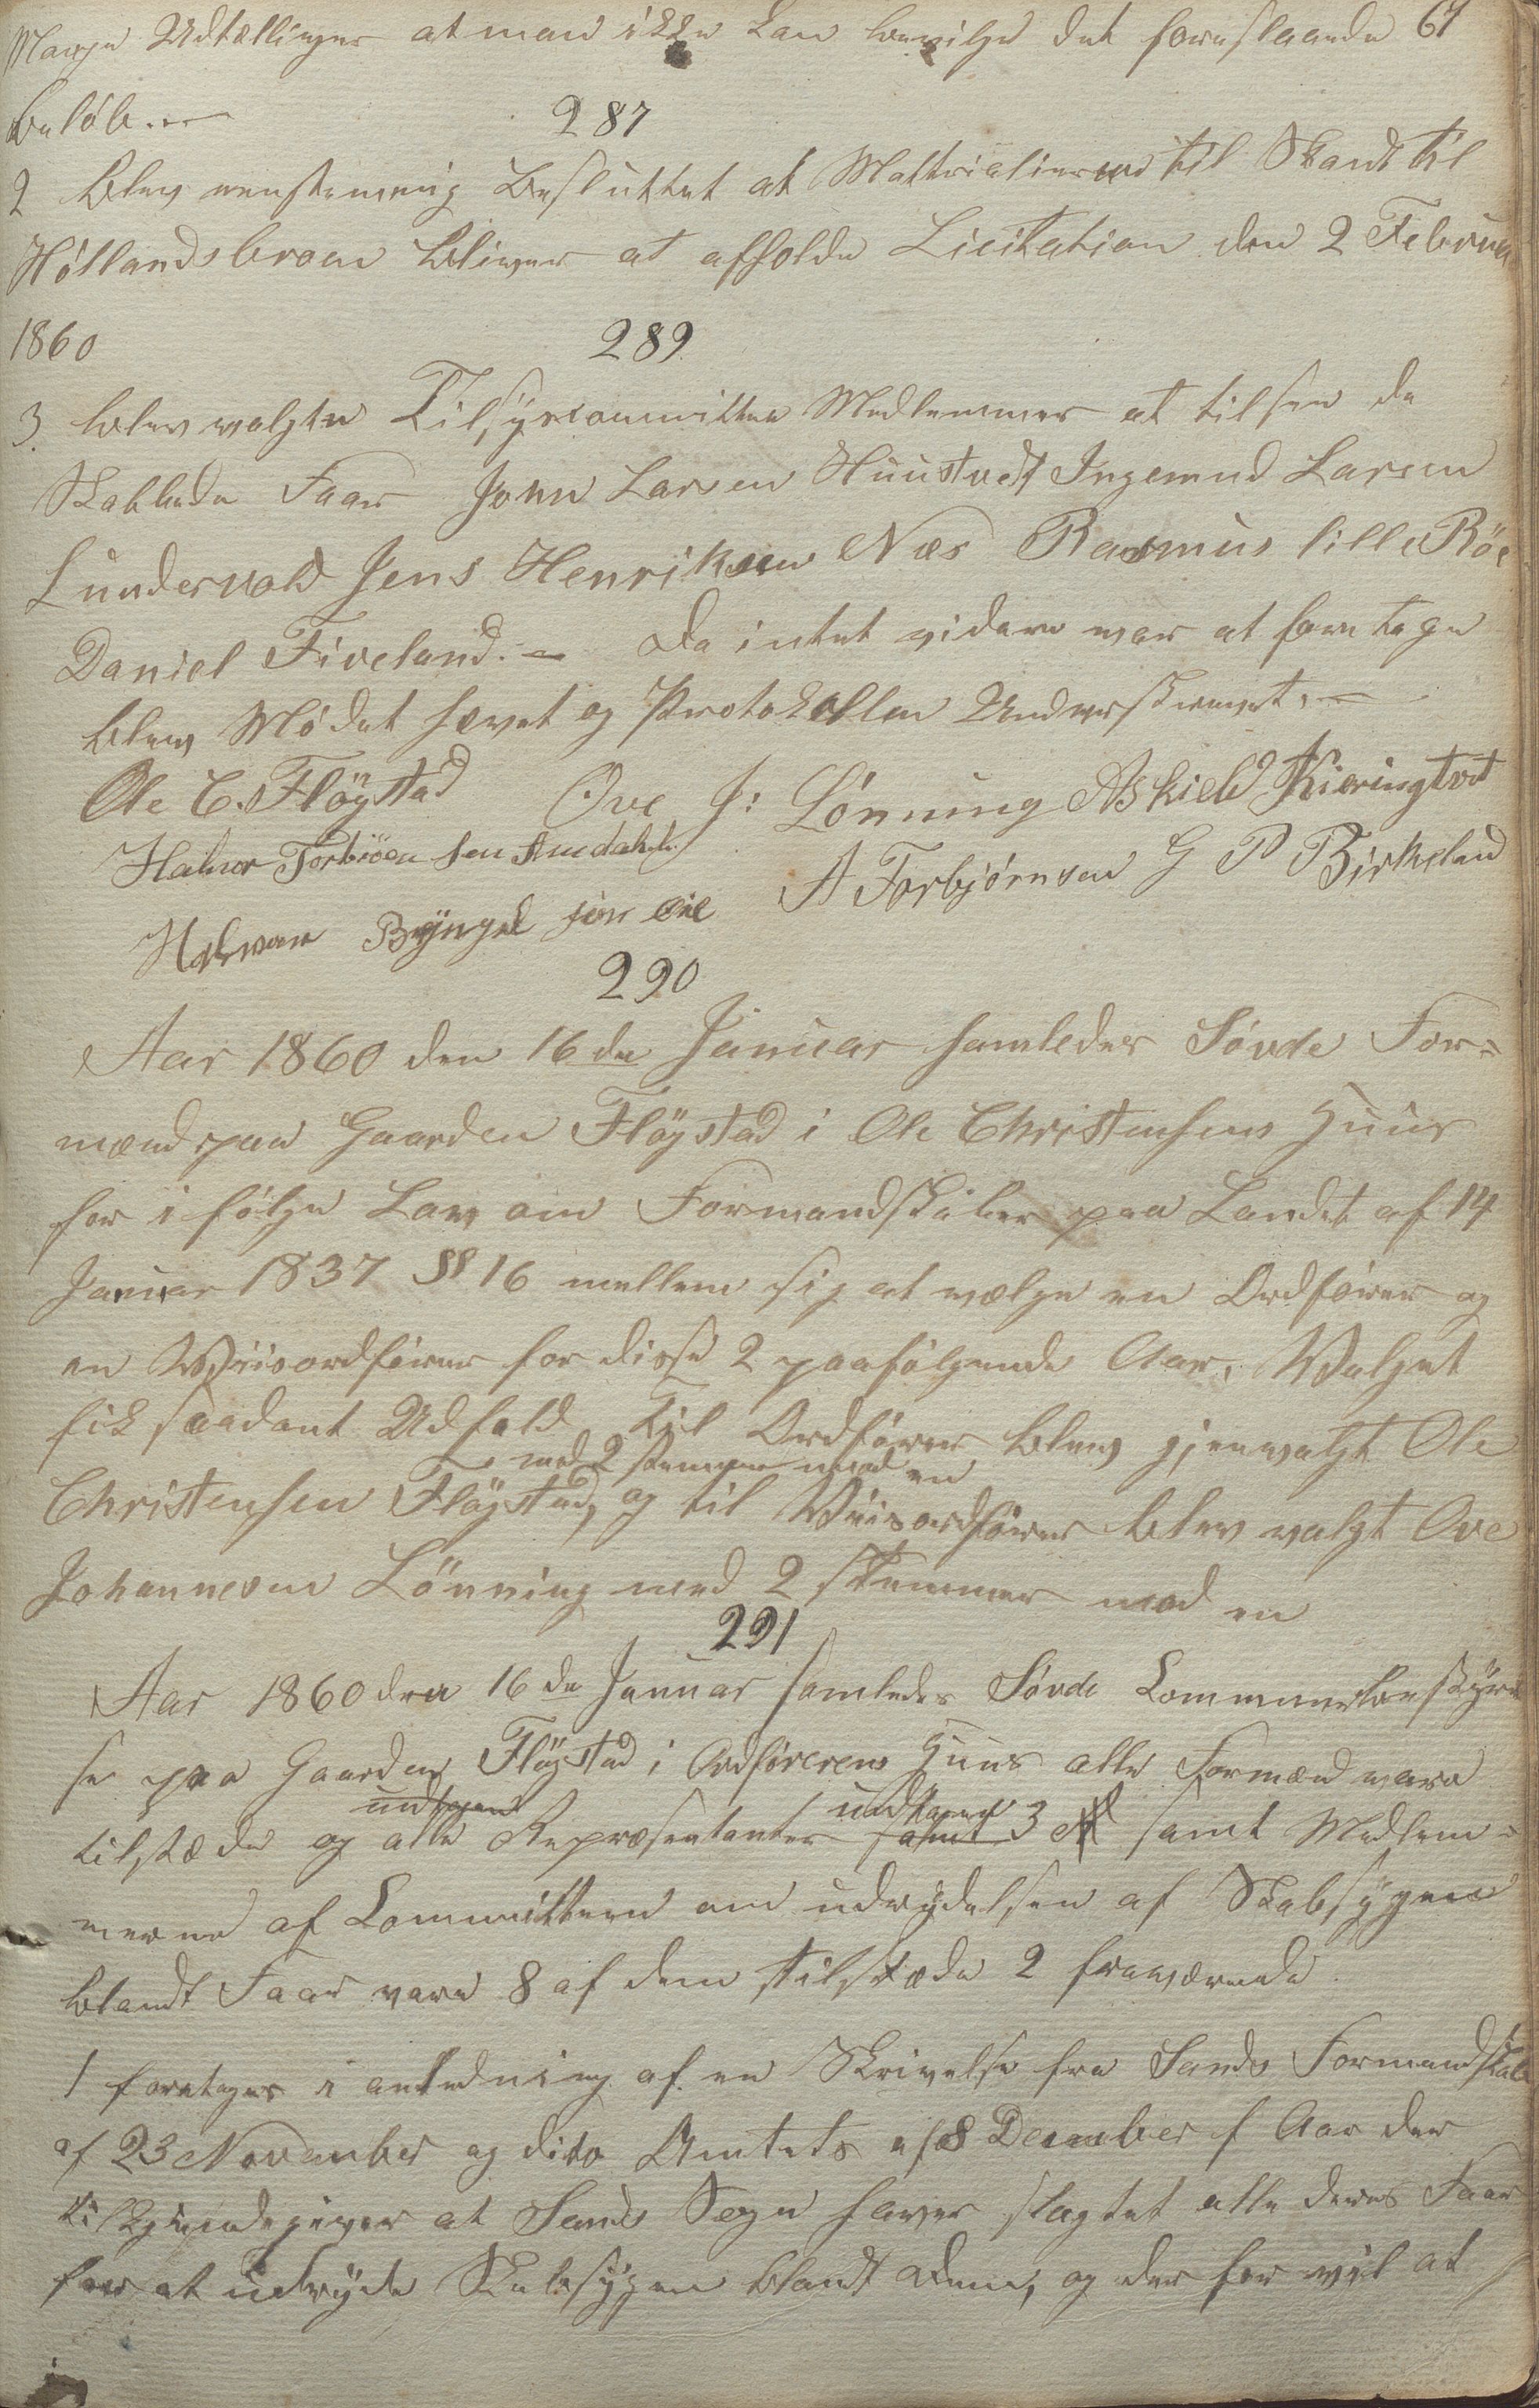 Mange Udtællinger at man ikke kan bevilge det foreslaaede 67
Beløb. —
287
2 blev eenstemmig besluttet at Mattrialierne til Skandt til
Høllandsbroen bliver at afholde Licitation den 2 Februar
1860
289
3. blev valgte Tilsyscommittee Medlemmer at tilsee de
Skabbede Faar John Larsen Huustvedt Ingemud Larsen
Lundervold Jens Henriksen Næs Rasmus lille Röe
Daniel Fiveland. — Da intet videre var at foretage
blev Mödet hævet og Protokollen Underskrevet. —
Ole C. Flögstad Ove J: Lønning Askield Kieringtvet
Halvor Torbiöen sen Amdahl
A Torbjörnsen G P Birkeland
Halvor Byngel sen
290
Aar 1860 den 16de Januar samledes Søvde For=
mænd paa Gaarden Flögstad i Ole Christensens Huus
for i følge Lov om Formandskaber paa Landet af 14
Januar 1837 §§ 16 mellem sig at vælge en Ordfører og
en Wiisordfører for disse 2 paafølgende Aar. Walget
fik saadant Udfald Til Ordfører blev gjenvalgt Ole
med 2 stemmer mod en
Christensen Flögstad, og til Wiisordfører blev valgt Ove
Johannesen Lönning med 2 stemmer mod en
291
Aar 1860 den 16de Januar samledes Søvde Communebestyrel
se paa Gaarden Flögstad i Ordførerens Huus alle Formænd vare
undtagen undtagen
tilstæde og alle Repræsentanter samt 3 samt Medlem=
merne af Committeen om udrydelsen af Skabsygen
blandt Faar vare 8 af dem tilstæde 2 fraværende.
1 foretoges i anledning af en Skrivelse fra Sands Formandskab
af 23 November og dito Amtets af 8 December f Aar der
tilkjendegiver at Sands Sogn haver slagtet alle deres Faar
for at udryde Skabsygen blandt dem, og der for vil at